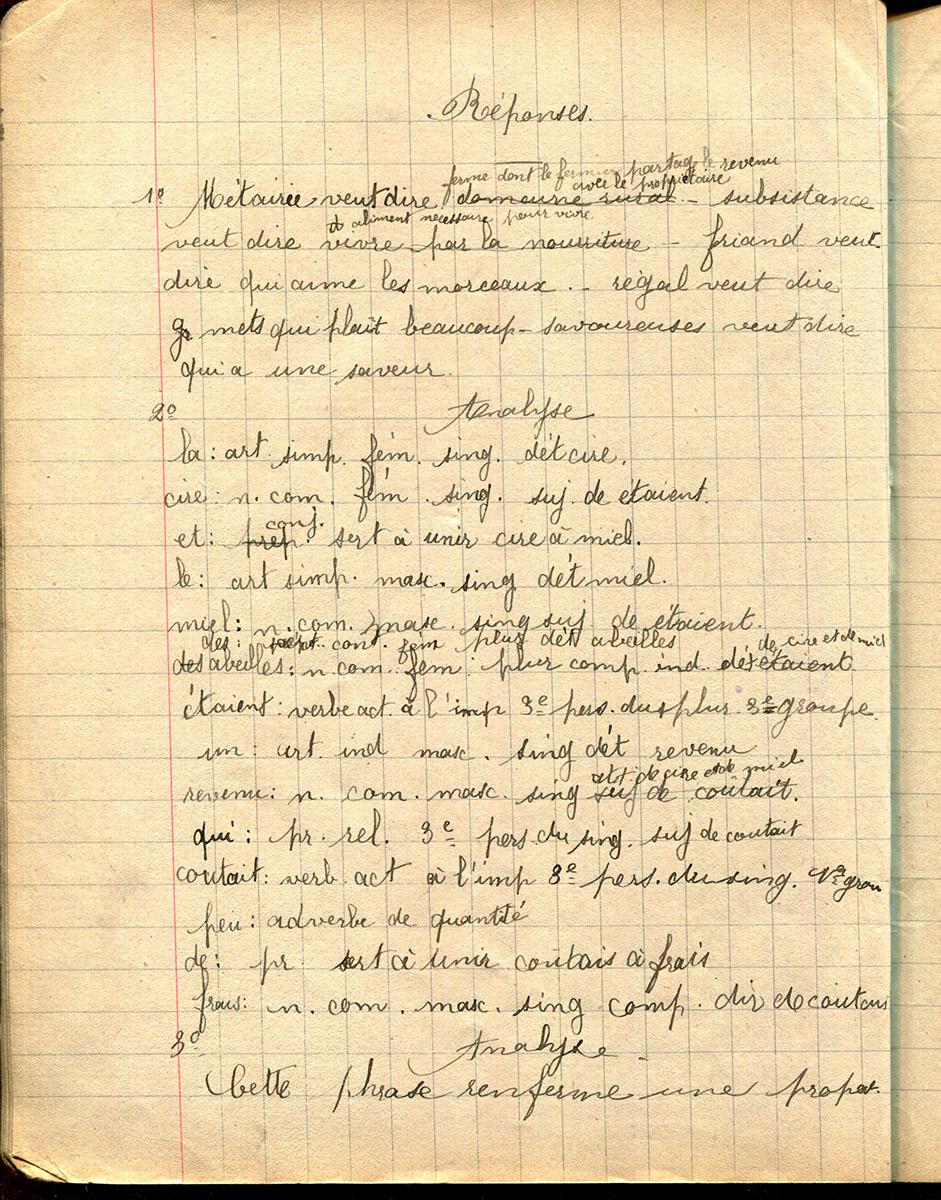 Réponses.
ferme dont le fermier partage le revenu
avec le propriétaire
1º Métairie veut dire demeure rural - subsistance
aliment necessaire pour vivre
veut dire vivre par la nourriture - friand veut
dire qui aime les morceaux. - régal veut dire
mets qui plaît beaucoup - savoureuses veut dire
qui a une saveur.
2º Analyse
la: art. simp. fém. sing. dét cire.
cire: n. com. fém. sing. suj. de etaient.
conj.
et: prép. sert à unir cire à miel.
le: art simp. masc. sing dét miel.
miel: n. com. masc. sing suj de étaient.
des: cont. fém plur dét abeilles
de cire et de miel
des abeilles: n com. fem. plur comp. ind. de étaient
étaient: verbe act. à l'imp 3e pers. du plur 3e groupe.
un: art. ind masc. sing dét revenu
att de cire et de miel
revenu: n. com. masc. sing suj de coûtait.
qui: pr. rel. 3e pers. du sing. suj de coutait
coutait: verb. act à l'imp 3e pers. du sing. 1e grou
peu: adverbe de quantité
de: pr sert à unir coûtais à frais
frais: n. com. masc. sing comp. dir de
3º Analyse
Cette phrase renferme une propos.